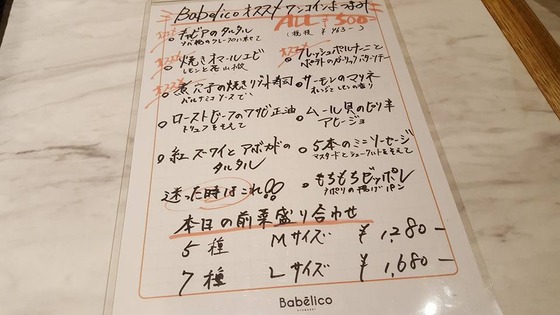 Babelico オススメ ワンコインおつまみ
ALL ¥500-
(税抜 ¥463-)
オススメ
キャビアのタルタル
オススメ
焼きオマールエビ
レモンと
オススメ
煮穴子の焼きリゾット寿司
バルサミコソースで
ローストビーフのワサビ正油
トリュフをそえて
紅ズワイとアボカドの
タルタル
オススメ
フレッシュポルチーニと
ポテトのガーリックバターソテー
サーモンのマリネ
ムール貝のピリ辛
アヒージョ
5本のミニソーセージ
マスタードとヨーグルトをそえて
もちもちゼッポレ
ナポリの揚げパン
迷った時はこれ!!
本日の前菜盛り合わせ
5種 Mサイズ ¥1,280-
7種 Lサイズ ¥1,680-
Babēlico